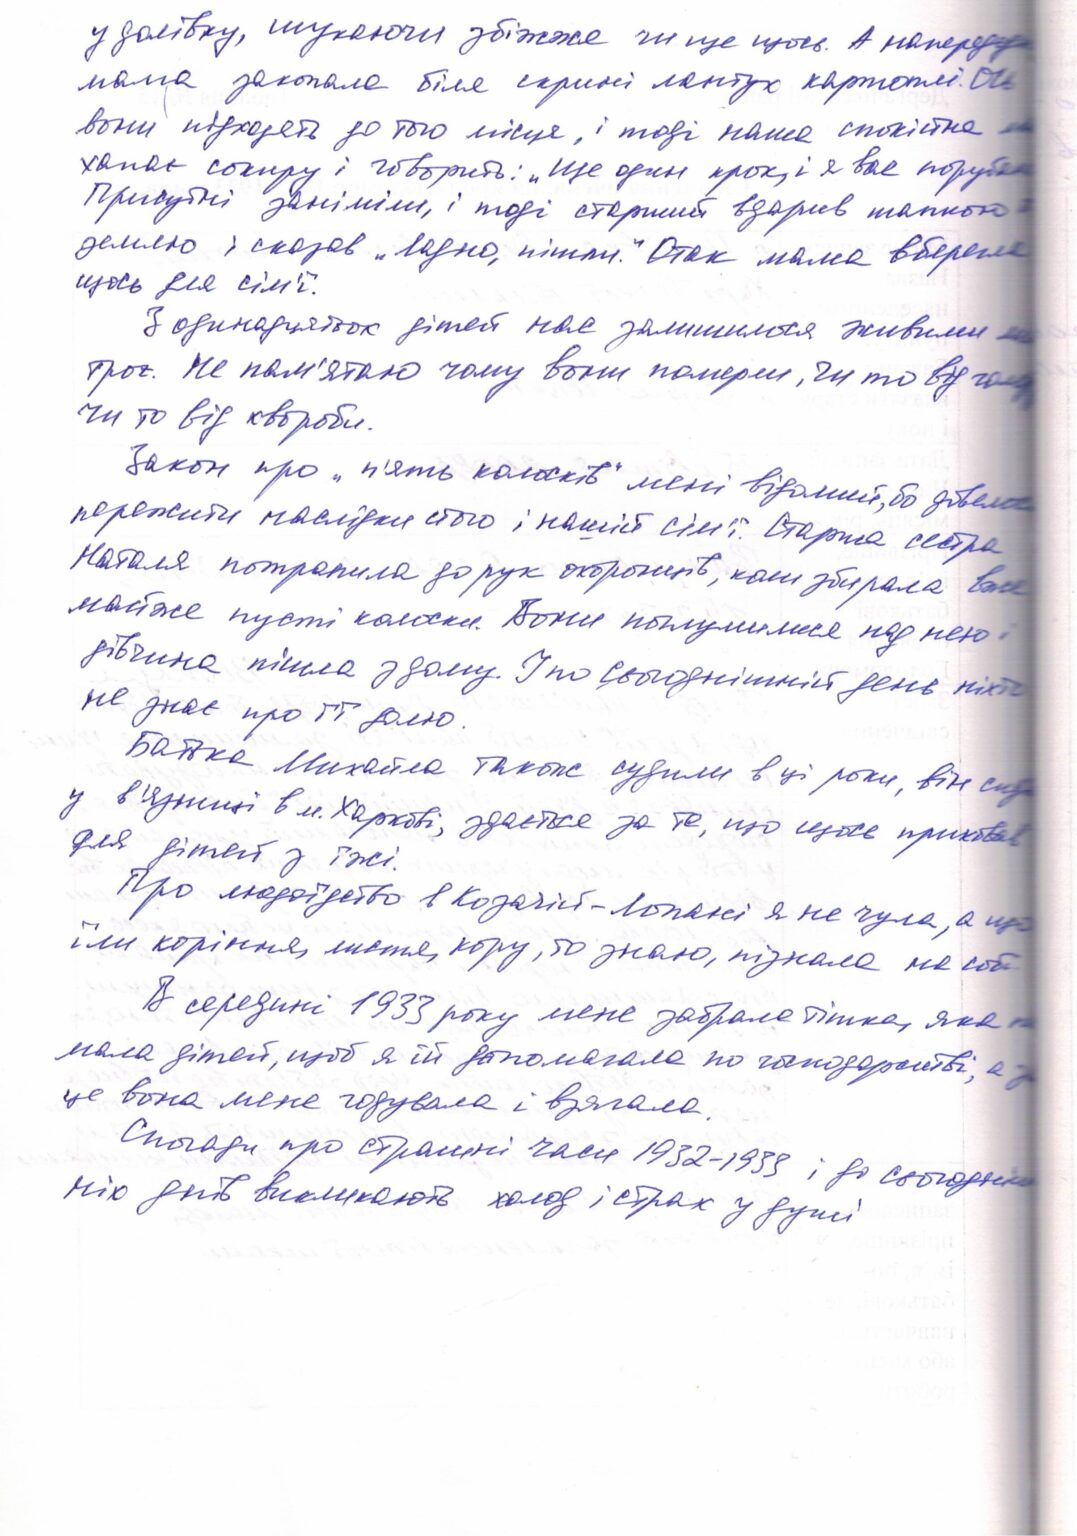 у долівку, шукаючи збіжжя чи ще щось. А напередодні
мама закопала біля скрині лантух картоплі. Ось
вони підходять до того місця, і тоді наша спокійна
хапає сокиру і говорить: „Ще один крок, і я вас порубаю
Присутні заніміли, і тоді старший вдарив шапкою
землю і сказав „Ладно, пішли." Отак мама вберегла
щось для сім'ї.
З одинадцятьох дітей нас залишилося живими
троє. Не пам'ятаю чому вони померли, чи то від голоду
чи то від хвороби.
Закон про „п'ять колосків" мені відомий, бо довелося
пережити наслідки його і нашій сім'ї. Старша сестра
Наталя потрапила до рук охоронців, коли збирала вже
майже пусті колоски. Вони поглумилися над нею і
дівчина пішла з дому. І по сьогоднішній день ніхто
не знає про її долю.
Батька Михайла також судили в ці роки, він сидів
у в'язниці в м. Харкові, здається за те, що щось приховав
для дітей з їжі.
Про людоїдство в Козачій-Лопані я не чула, а що
їли коріння, листя, кору, то знаю, пізнала на собі
В середині 1933 року мене забрала тітка, яка не
мала дітей, щоб я їй допомагала по господарстві, а за
це вона мене годувала і вдягала.
Спогади про страшні часи 1932-1933 і до сьогодніш
ніх днів викликають холод і страх у душі